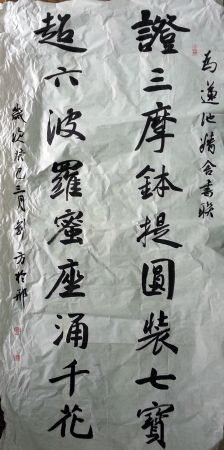 為蓮池精舍書聯
證三摩鉢提圓裝七寶
超六波羅蜜座涌千花
歲次癸巳三月 方於